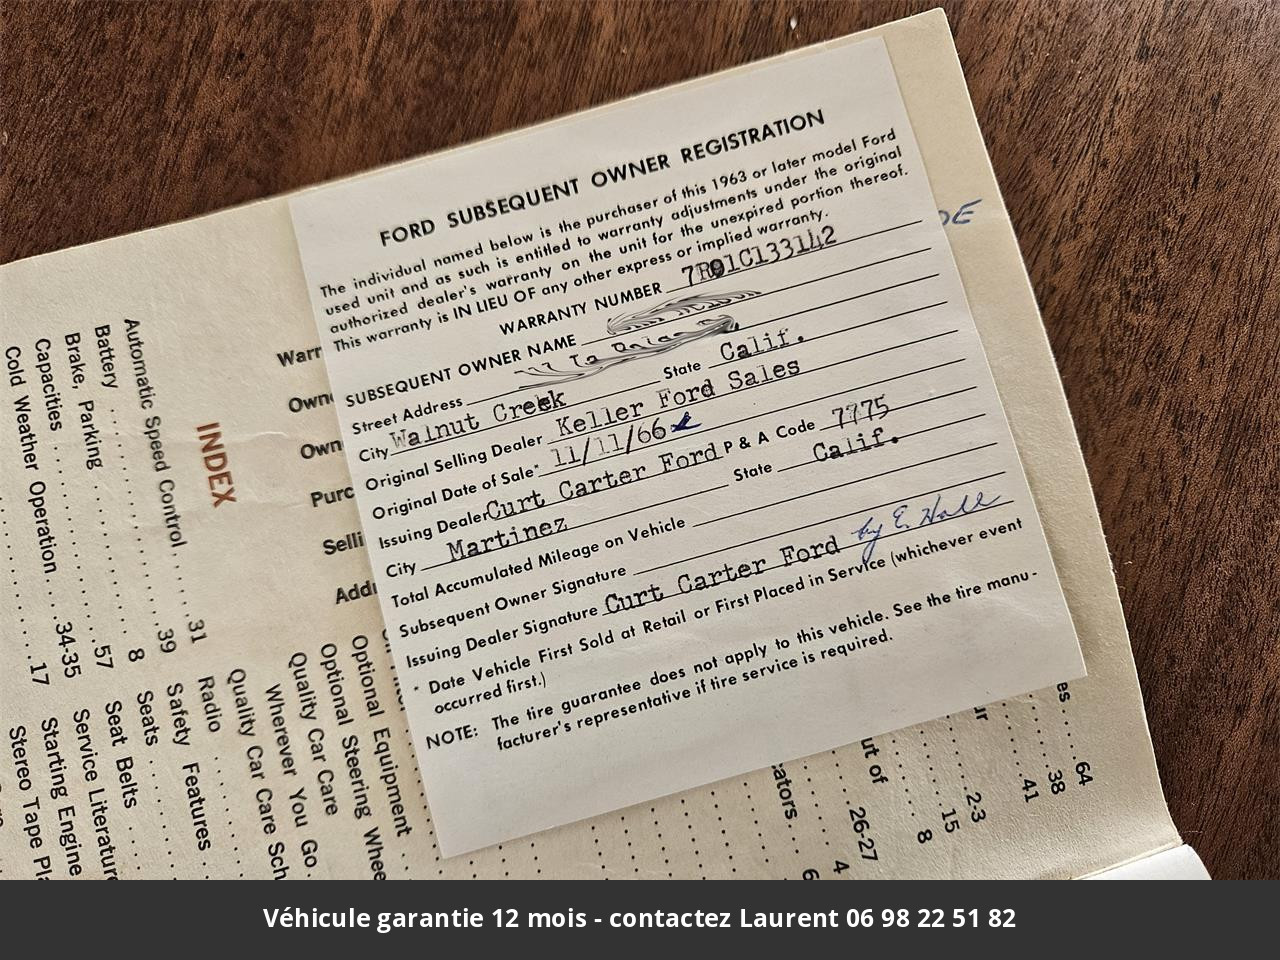 FORD SUBSEQUENT OWNER REGISTRATION
The individual named below is the purchaser of this 1963 or later model Ford
used unit and as such is entitled to warranty adjustments under the original
authorized dealer's warranty on the unit for the unexpired portion thereof.
This warranty is IN LIEU OF any other express or implied warranty.
WARRANTY NUMBER 7R01C133142
SUBSEQUENT OWNER NAME
Street Address
City Walnut Creek State Calif.
Original Selling Dealer Keller Ford Sales
Original Date of Sale* 11/11/66
Issuing Dealer Curt Carter Ford P & A Code 7775
City Martinez State Calif.
Total Accumulated Mileage on Vehicle
Subsequent Owner Signature
Issuing Dealer Signature Curt Carter Ford by E. Hall
* Date Vehicle First Sold at Retail or First Placed in Service (whichever event
occurred first.)
NOTE: The tire guarantee does not apply to this vehicle. See the tire manu-
facturer's representative if tire service is required.
INDEX
Automatic Speed Control 31
Battery 39
Brake, Parking 8
Capacities 57
Cold Weather Operation 34-35
17
Optional Equipment
Optional Steering Whee
Quality Car Care
Wherever You Go
Quality Car Care Sch
Radio
Safety Features
Seats
Seat Belts
Service Literature
Starting Engine
Stereo Tape Pla
Warr
Own
Own
Purc
Selli
Add
DE
es 64
38
ur 41
2-3
15
ut of 8
26-27
cators 4
6
Véhicule garantie 12 mois - contactez Laurent 06 98 22 51 82